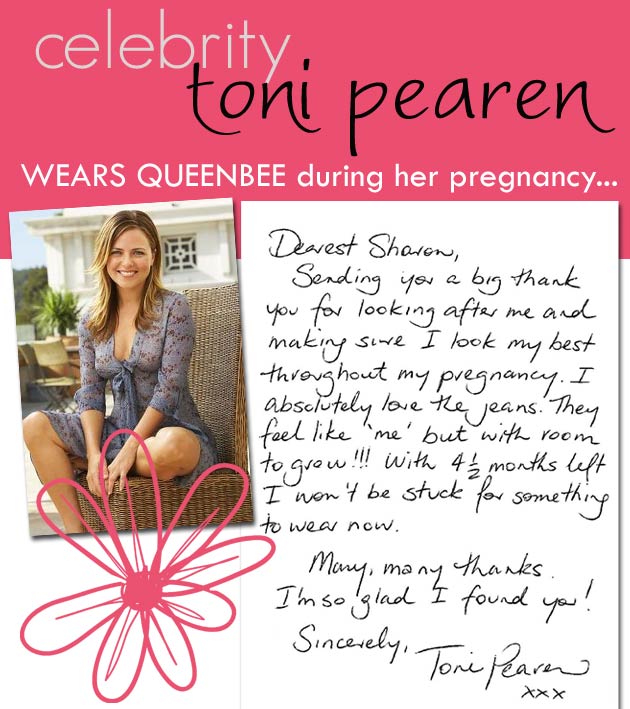 celebrity
toni pearen
WEARS QUEENBEE during her pregnancy...
Dearest Sharon,
Sending you a big thank
you for looking after me and
making sure I look my best
throughout my pregnancy. I
absolutely love the jeans. They
feel like 'me' but with room
to grow!!! With 4½ months left
I won't be stuck for something
to wear now.
Many, many thanks.
I'm so glad I found you!
Sincerely,
Toni Pearen
xxx